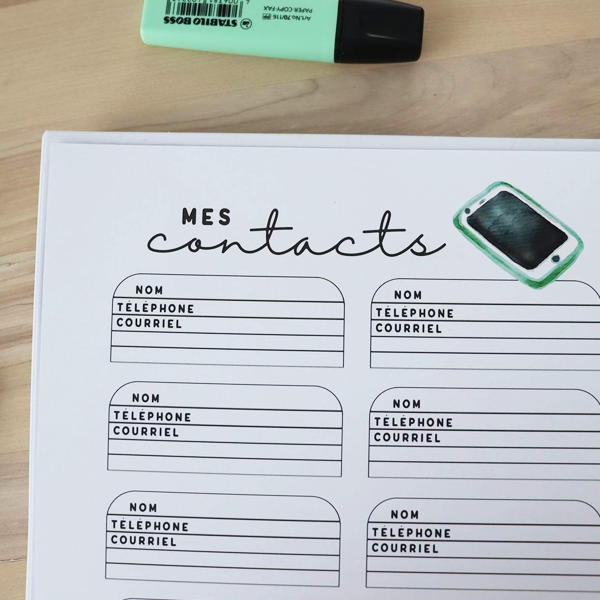 STABILO BOSS
Art.No.70/116
PAPER-COPY-FAX
MES
contacts
NOM
TÉLÉPHONE
COURRIEL
NOM
TÉLÉPHONE
COURRIEL
NOM
TÉLÉPHONE
COURRIEL
NOM
TÉLÉPHONE
COURRIEL
NOM
TÉLÉPHONE
COURRIEL
NOM
TÉLÉPHONE
COURRIEL